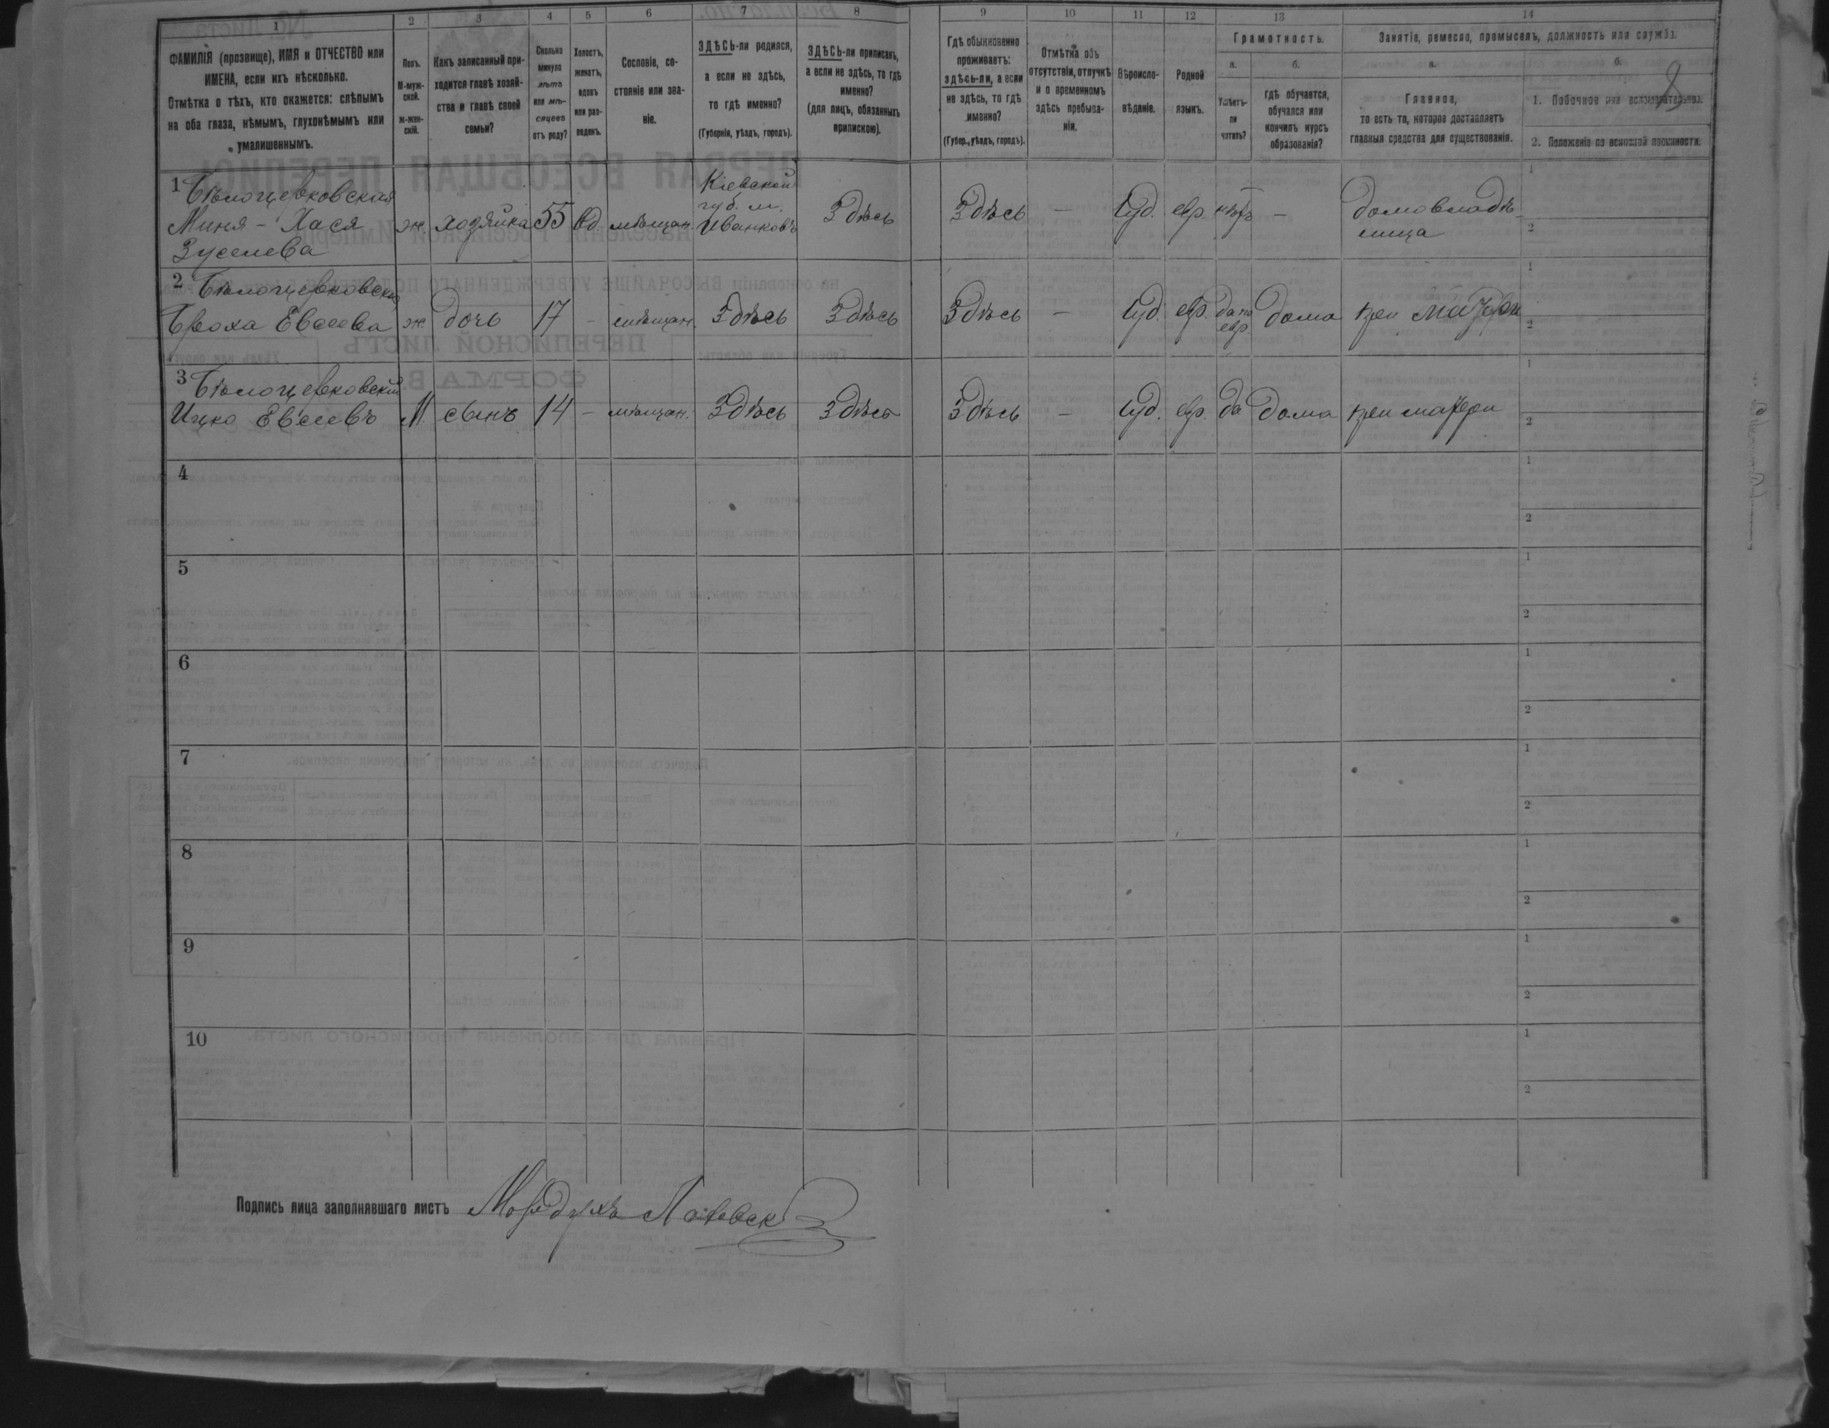 1 2 3 4 5 6 7 8 9 10 11 12 13 14
ФАМИЛІЯ (прозвище), ИМЯ и ОТЧЕСТВО или
ИМЕНА, если ихъ нѣсколько.
Отмѣтка о тѣхъ, кто окажется: слѣпымъ
на оба глаза, нѣмымъ, глухонѣмымъ или
умалишеннымъ.
Полъ.
М-муж-
ской.
ж-жен-
скій.
Какъ записанный при-
ходится главѣ хозяй-
ства и главѣ своей
семьи?
Сколько
минуло
лѣтъ
или мѣ-
сяцевъ
отъ роду?
Холостъ,
женатъ,
вдовъ
или раз-
веденъ.
Сословіе, со-
стояніе или зва-
ніе.
ЗДѢСЬ-ли родился,
а если не здѣсь,
то гдѣ именно?
(Губернія, уѣздъ, городъ).
ЗДѢСЬ-ли приписанъ,
а если не здѣсь, то гдѣ
именно?
(для лицъ, обязанныхъ
припискою).
Гдѣ обыкновенно
проживаетъ:
здѣсь-ли, а если
не здѣсь, то гдѣ
именно?
(Губер., уѣздъ, городъ).
Отмѣтка объ
отсутствіи, отлучкѣ
и о временномъ
здѣсь пребыва-
ніи.
Вѣроиспо-
вѣданіе.
Родной
языкъ.
Грамотность.
а.
Умѣетъ-
ли
читать?
б.
Гдѣ обучается,
обучался или
кончилъ курсъ
образованія?
Занятіе, ремесло, промыселъ, должность или служба.
а.
Главное,
то есть то, которое доставляетъ
главныя средства для существованія.
б.
1. Побочное или вспомогательное.
2. Положеніе по воинской повинности.
8
1 Бѣлоцерковская
Миня - Хася
Зуселева
ж хозяйка 55 вд мѣщан.
Кіевской
губ. м.
Иванковъ
Здѣсь Здѣсь — іуд. евр. нѣтъ —
домовладѣ-
лица
2 Бѣлоцерковская
Броха Евсеева ж дочь 17 - мѣщан. Здѣсь Здѣсь Здѣсь — іуд евр. да по
евр
дома при матери
3 Бѣлоцерковскій
Ицко Евсеевъ М сынъ 14 - мѣщан. Здѣсь Здѣсь Здѣсь — іуд. евр. да дома при матери
4
5
6
7
8
9
10
Подпись лица заполнявшаго листъ Мордухъ